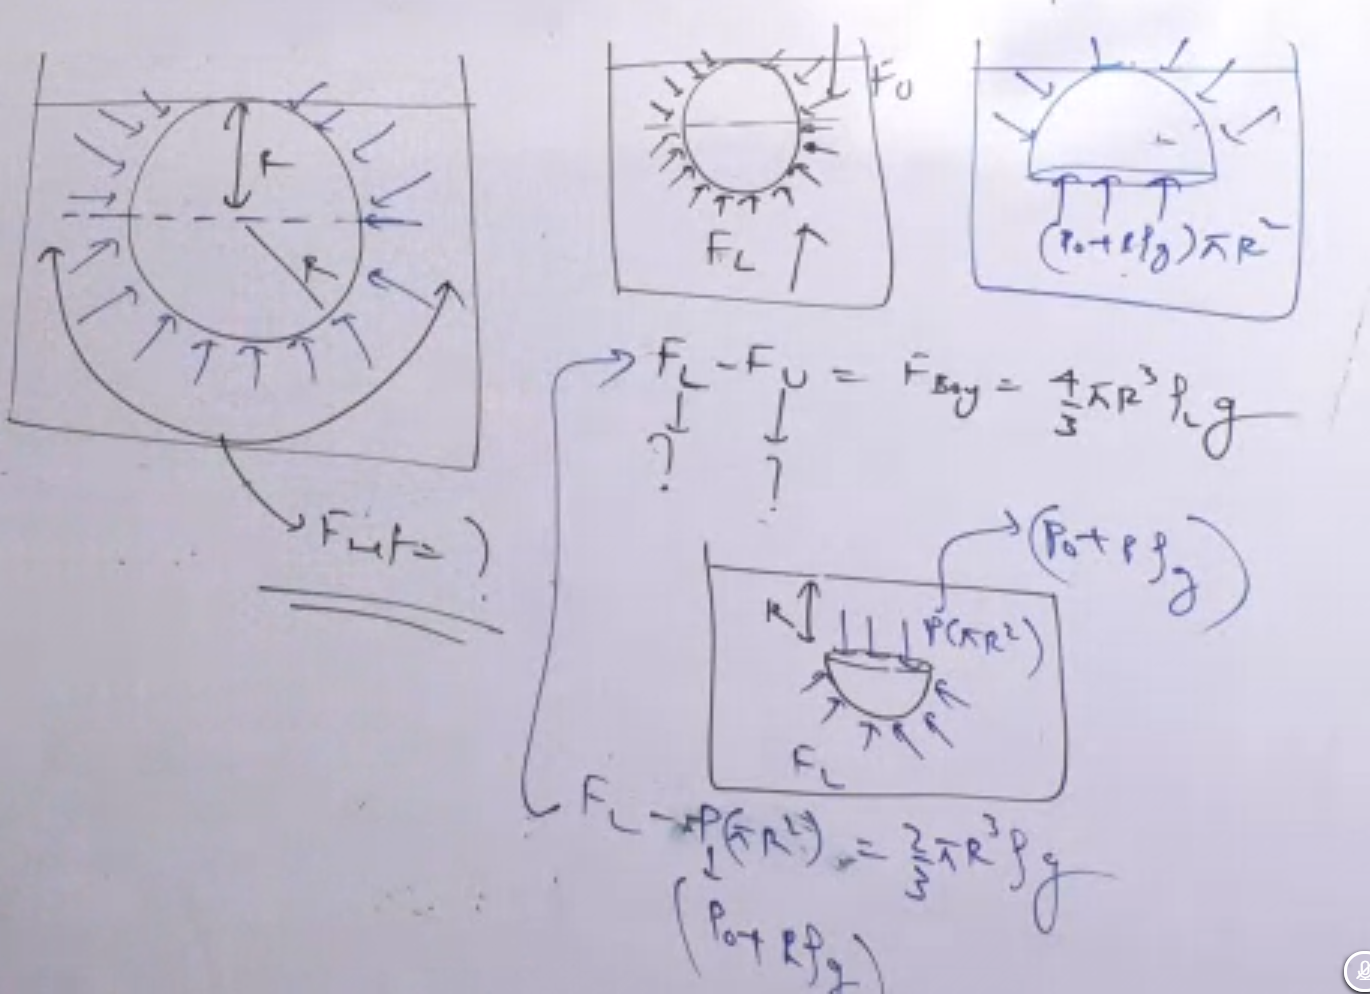 r
R
F_net = ?
F_U
F_L
(P₀+Rρg)πR²
F_L - F_U = F_Boy = 4/3 πR³ρ_L g
? ?
(P₀+Rρg)
R
P(πR²)
F_L
F_L - P(πR²) = 2/3 πR³ρg
(P₀+Rρg)